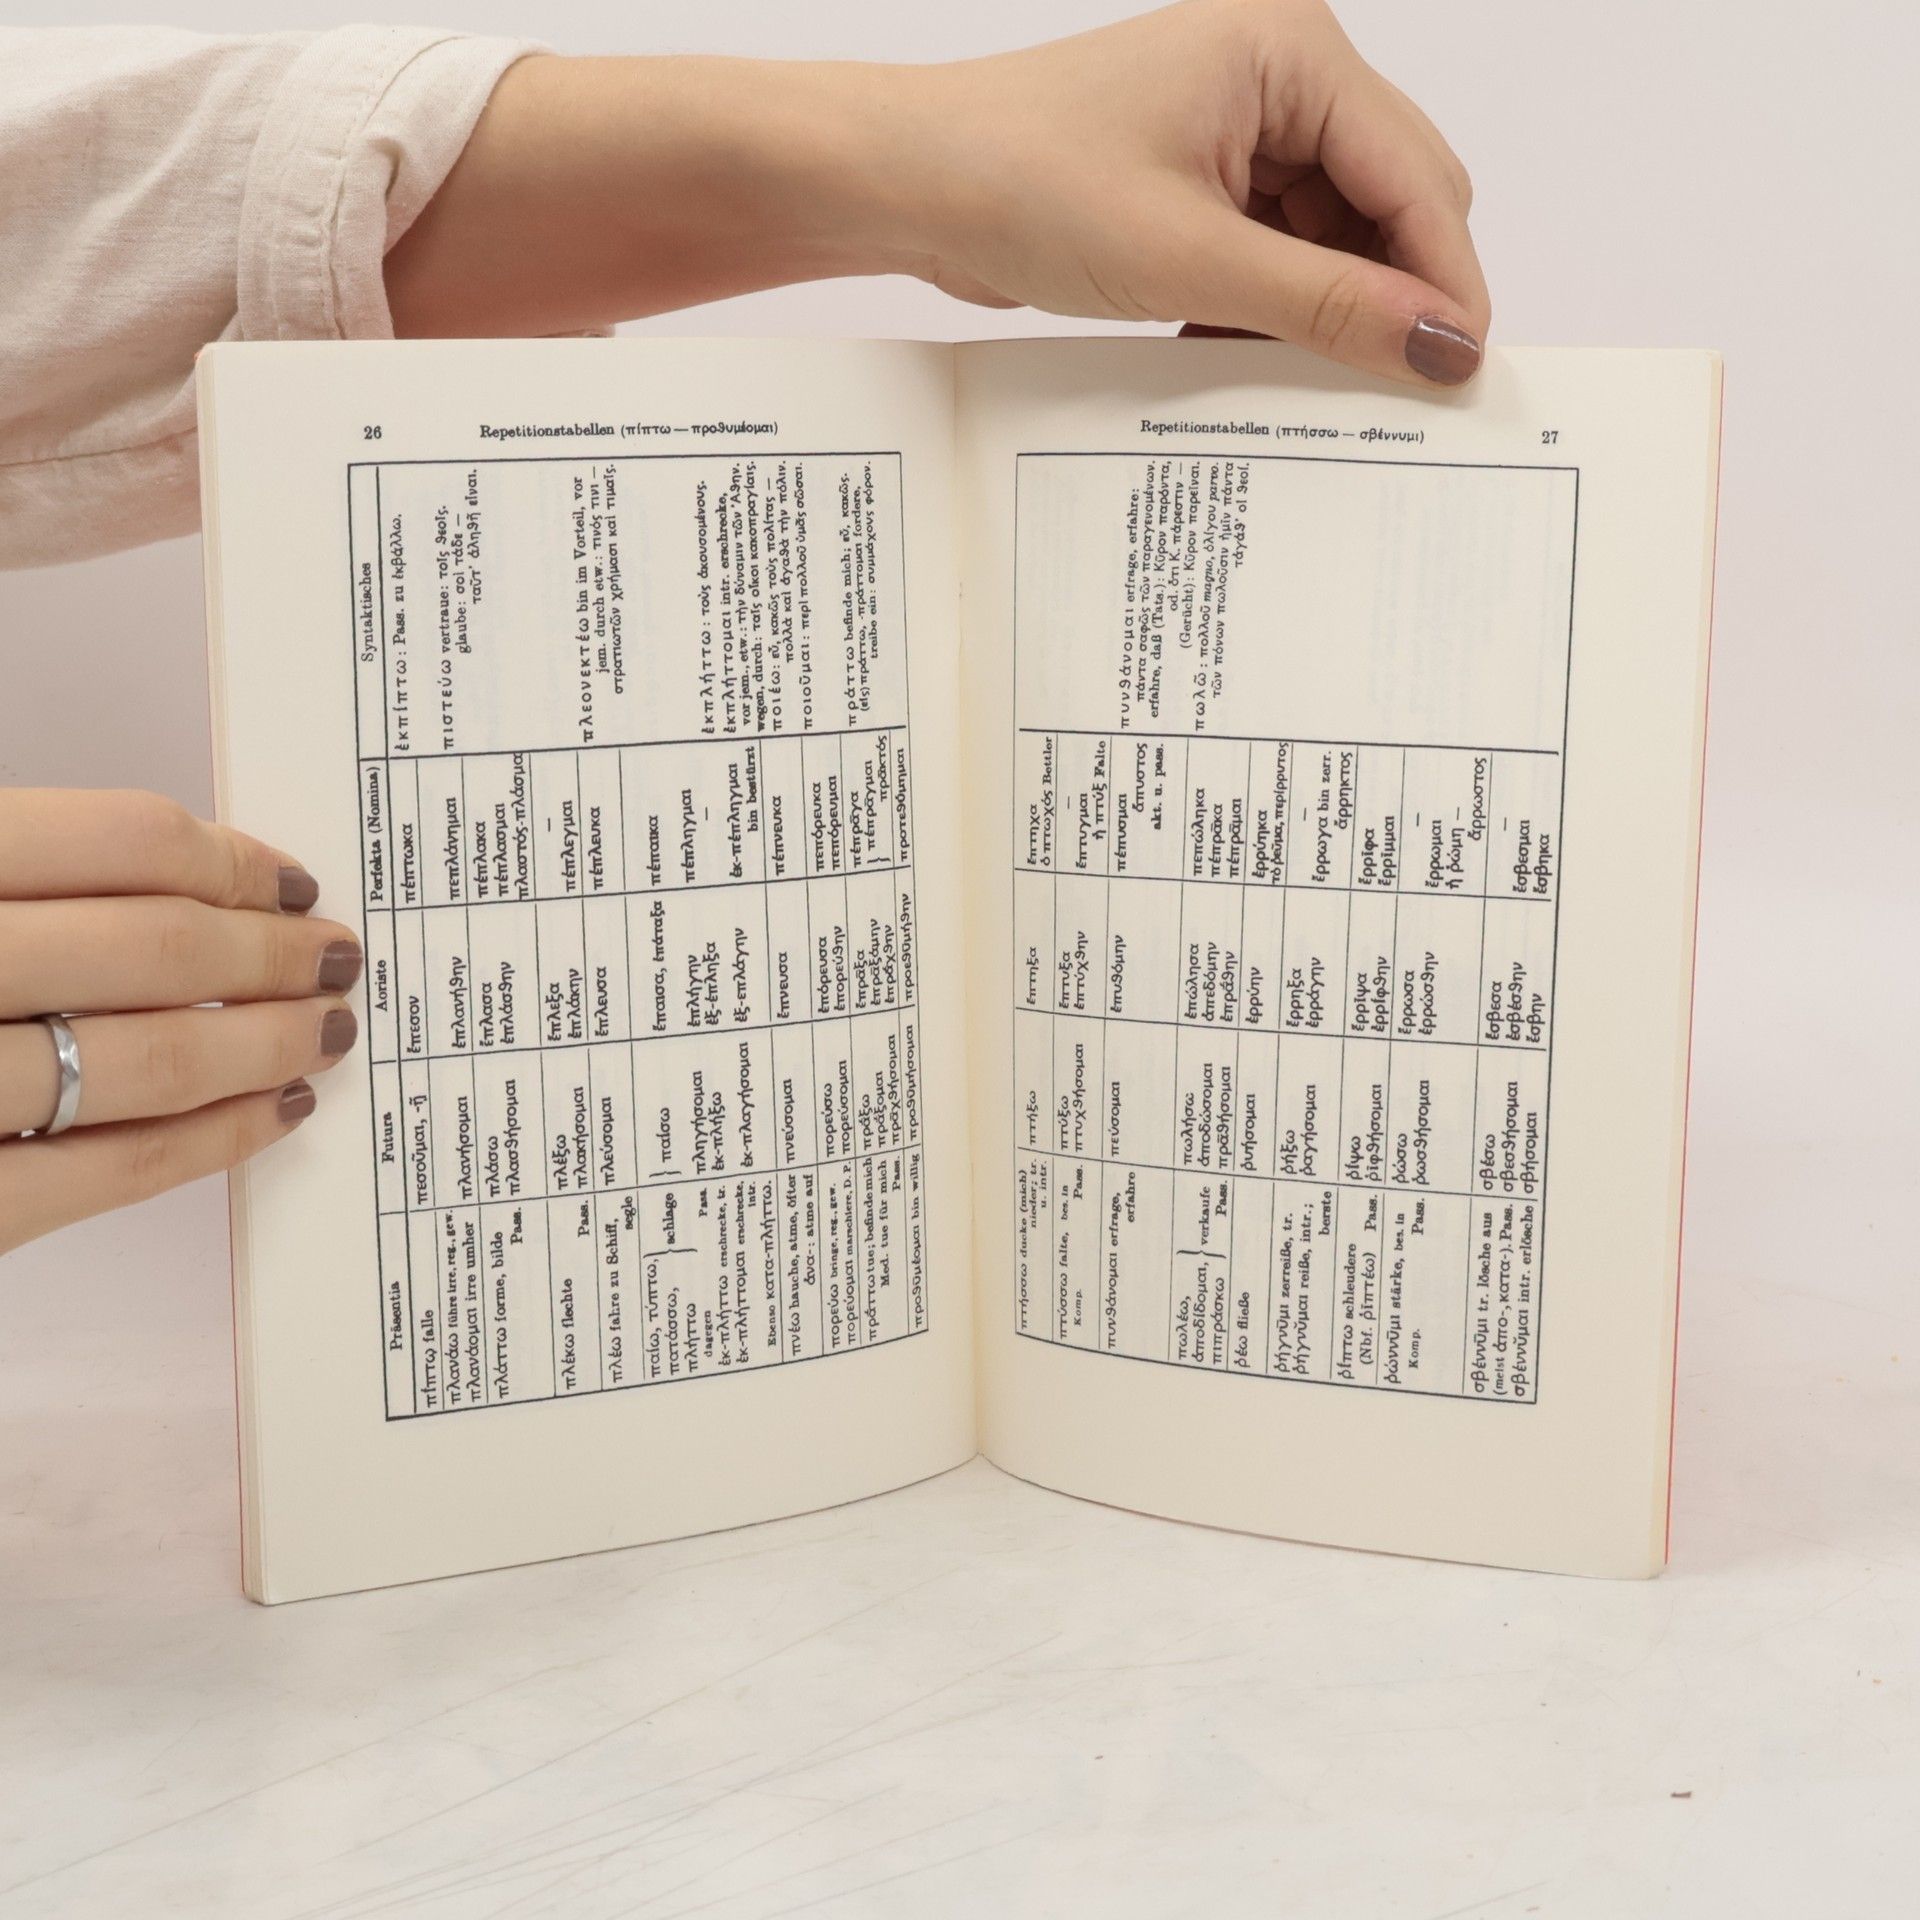 26
Repetitionstabellen (πίπτω — προθυμέομαι)
Präsentia
Futura
Aoriste
Perfekta (Nomina)
Syntaktisches
πίπτω falle
πεσοῦμαι, -ῇ
ἔπεσον
πέπτωκα
ἐκπίπτω: Pass. zu ἐκβάλλω.
πλανάω führe irre, reg., gew.
πλανάομαι irre umher
πλανήσομαι
ἐπλανήθην
πεπλάνημαι
πιστεύω vertraue: τοῖς θεοῖς.
glaube: σοὶ τάδε —
ταῦτ’ ἀληθῆ εἶναι.
πλάττω forme, bilde
Pass.
πλάσω
πλασθήσομαι
ἔπλασα
ἐπλάσθην
πέπλακα
πέπλασμαι
πλαστός-πλάσμα
πλέκω flechte
Pass.
πλέξω
πλακήσομαι
ἔπλεξα
ἐπλάκην
—
πέπλεγμαι
πλεονεκτέω bin im Vorteil, vor
jem. durch etw.: τινός τινι —
στρατιωτῶν χρήμασι καὶ τιμαῖς.
πλέω fahre zu Schiff,
segle
πλεύσομαι
ἔπλευσα
πέπλευκα
παίω, τύπτω,
πατάσσω,
πλήττω
schlage
Pass.
παίσω
πληγήσομαι
ἔπαισα, ἐπάταξα
ἐπλήγην
πέπαικα
πέπληγμαι
dagegen
ἐκ-πλήττω erschrecke, tr.
ἐκ-πλήξω
ἐξ-έπληξα
—
ἐκπλήττω: τοὺς ἀκουσομένους.
ἐκ-πλήττομαι erschrecke,
intr.
ἐκ-πλαγήσομαι
ἐξ-επλάγην
ἐκ-πέπληγμαι
bin bestürzt
ἐκπλήττομαι intr. erschrecke,
vor jem., etw.: τὴν δύναμιν τῶν Ἀθην.
wegen, durch: ταῖς οἴκοι κακοπραγίαις.
Ebenso κατα-πλήττω.
πνέω hauche, atme, öfter
ἀνα-: atme auf
πνεύσομαι
ἔπνευσα
πέπνευκα
ποιέω: εὖ, κακῶς τοὺς πολίτας —
πολλὰ καὶ ἀγαθὰ τὴν πόλιν.
ποιοῦμαι: περὶ πολλοῦ ὑμᾶς σῶσαι.
πορεύω bringe, reg., gew.
πορεύομαι marschiere, D. P.
πορεύσω
πορεύσομαι
ἐπόρευσα
ἐπορεύθην
πεπόρευκα
πεπόρευμαι
πράττω tue; befinde mich
Med. tue für mich
Pass.
πράξω
πράξομαι
πραχθήσομαι
ἔπραξα
ἐπραξάμην
ἐπράχθην
πέπραγα
πέπραγμαι
πρακτός
πράττω befinde mich; εὖ, κακῶς.
(εἰς)πράττω, -πράττομαι fordere,
treibe ein: συμμάχους φόρον.
προθυμέομαι bin willig
προθυμήσομαι
προεθυμήθην
προτεθύμημαι
Repetitionstabellen (πτήσσω — σβέννυμι)
27
πτήσσω ducke (mich)
nieder; tr.
u. intr.
πτήξω
ἔπτηξα
ἔπτηχα
ὁ πτωχός Bettler
πτύσσω falte, bes. in
Komp.
Pass.
πτύξω
πτυχθήσομαι
ἔπτυξα
ἐπτύχθην
—
ἔπτυγμαι
ἡ πτύξ Falte
πυνθάνομαι erfrage,
erfahre
πεύσομαι
ἐπυθόμην
πέπυσμαι
ἄπυστος
akt. u. pass.
πυνθάνομαι erfrage, erfahre:
πάντα σαφῶς τῶν παραγενομένων.
erfahre, daß (Tats.): Κῦρον παρόντα,
od. ὅτι Κ. πάρεστιν —
(Gerücht): Κῦρον παρεῖναι.
πωλέω,
ἀποδίδομαι,
πιπράσκω
verkaufe
Pass.
πωλήσω
ἀποδώσομαι
πραθήσομαι
ἐπώλησα
ἀπεδόμην
ἐπράθην
πεπώληκα
πέπρακα
πέπραμαι
πωλῶ: πολλοῦ magno, ὀλίγου parvo.
τῶν πόνων πωλοῦσιν ἡμῖν πάντα
τἀγάθ’ οἱ θεοί.
ῥέω fließe
ῥυήσομαι
ἐρρύην
ἐρρύηκα
τὸ ῥεῦμα, περίρρυτος
ῥήγνυμι zerreiße, tr.
ῥήγνυμαι reiße, intr.;
berste
ῥήξω
ῥαγήσομαι
ἔρρηξα
ἐρράγην
—
ἔρρωγα bin zerr.
ἄρρηκτος
ῥίπτω schleudere
(Nbf. ῥιπτέω)
Pass.
ῥίψω
ῥιφθήσομαι
ἔρριψα
ἐρρίφθην
ἔρριφα
ἔρριμμαι
ῥώννυμι stärke, bes. in
Komp.
Pass.
ῥώσω
ῥωσθήσομαι
ἔρρωσα
ἐρρώσθην
—
ἔρρωμαι
ἡ ῥώμη —
ἄρρωστος
σβέννυμι tr. lösche aus
(meist ἀπο-, κατα-). Pass.
σβέννυμαι intr. erlösche
σβέσω
σβεσθήσομαι
σβήσομαι
ἔσβεσα
ἐσβέσθην
ἔσβην
—
ἔσβεσμαι
ἔσβηκα